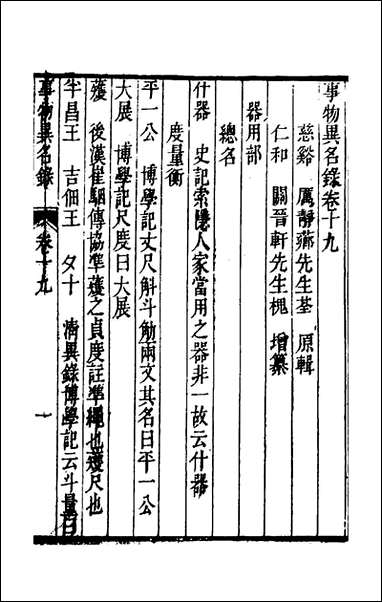 事物異名錄卷十九
慈谿 厲靜薌先生荃 原輯
仁和 關晉軒先生槐 增纂
器用部
總名
什器 史記索隱人家當用之器非一故云什器
度量衡
平一公 博學記丈尺斛斗觔兩文其名曰平一公
大展 博學記尺度曰大展
蒦 後漢崔駰傳協準蒦之貞度註準繩也蒦尺也
半昌王 吉佃王 夕十 清異錄博學記云斗量曰
事物異名錄 卷十九 一